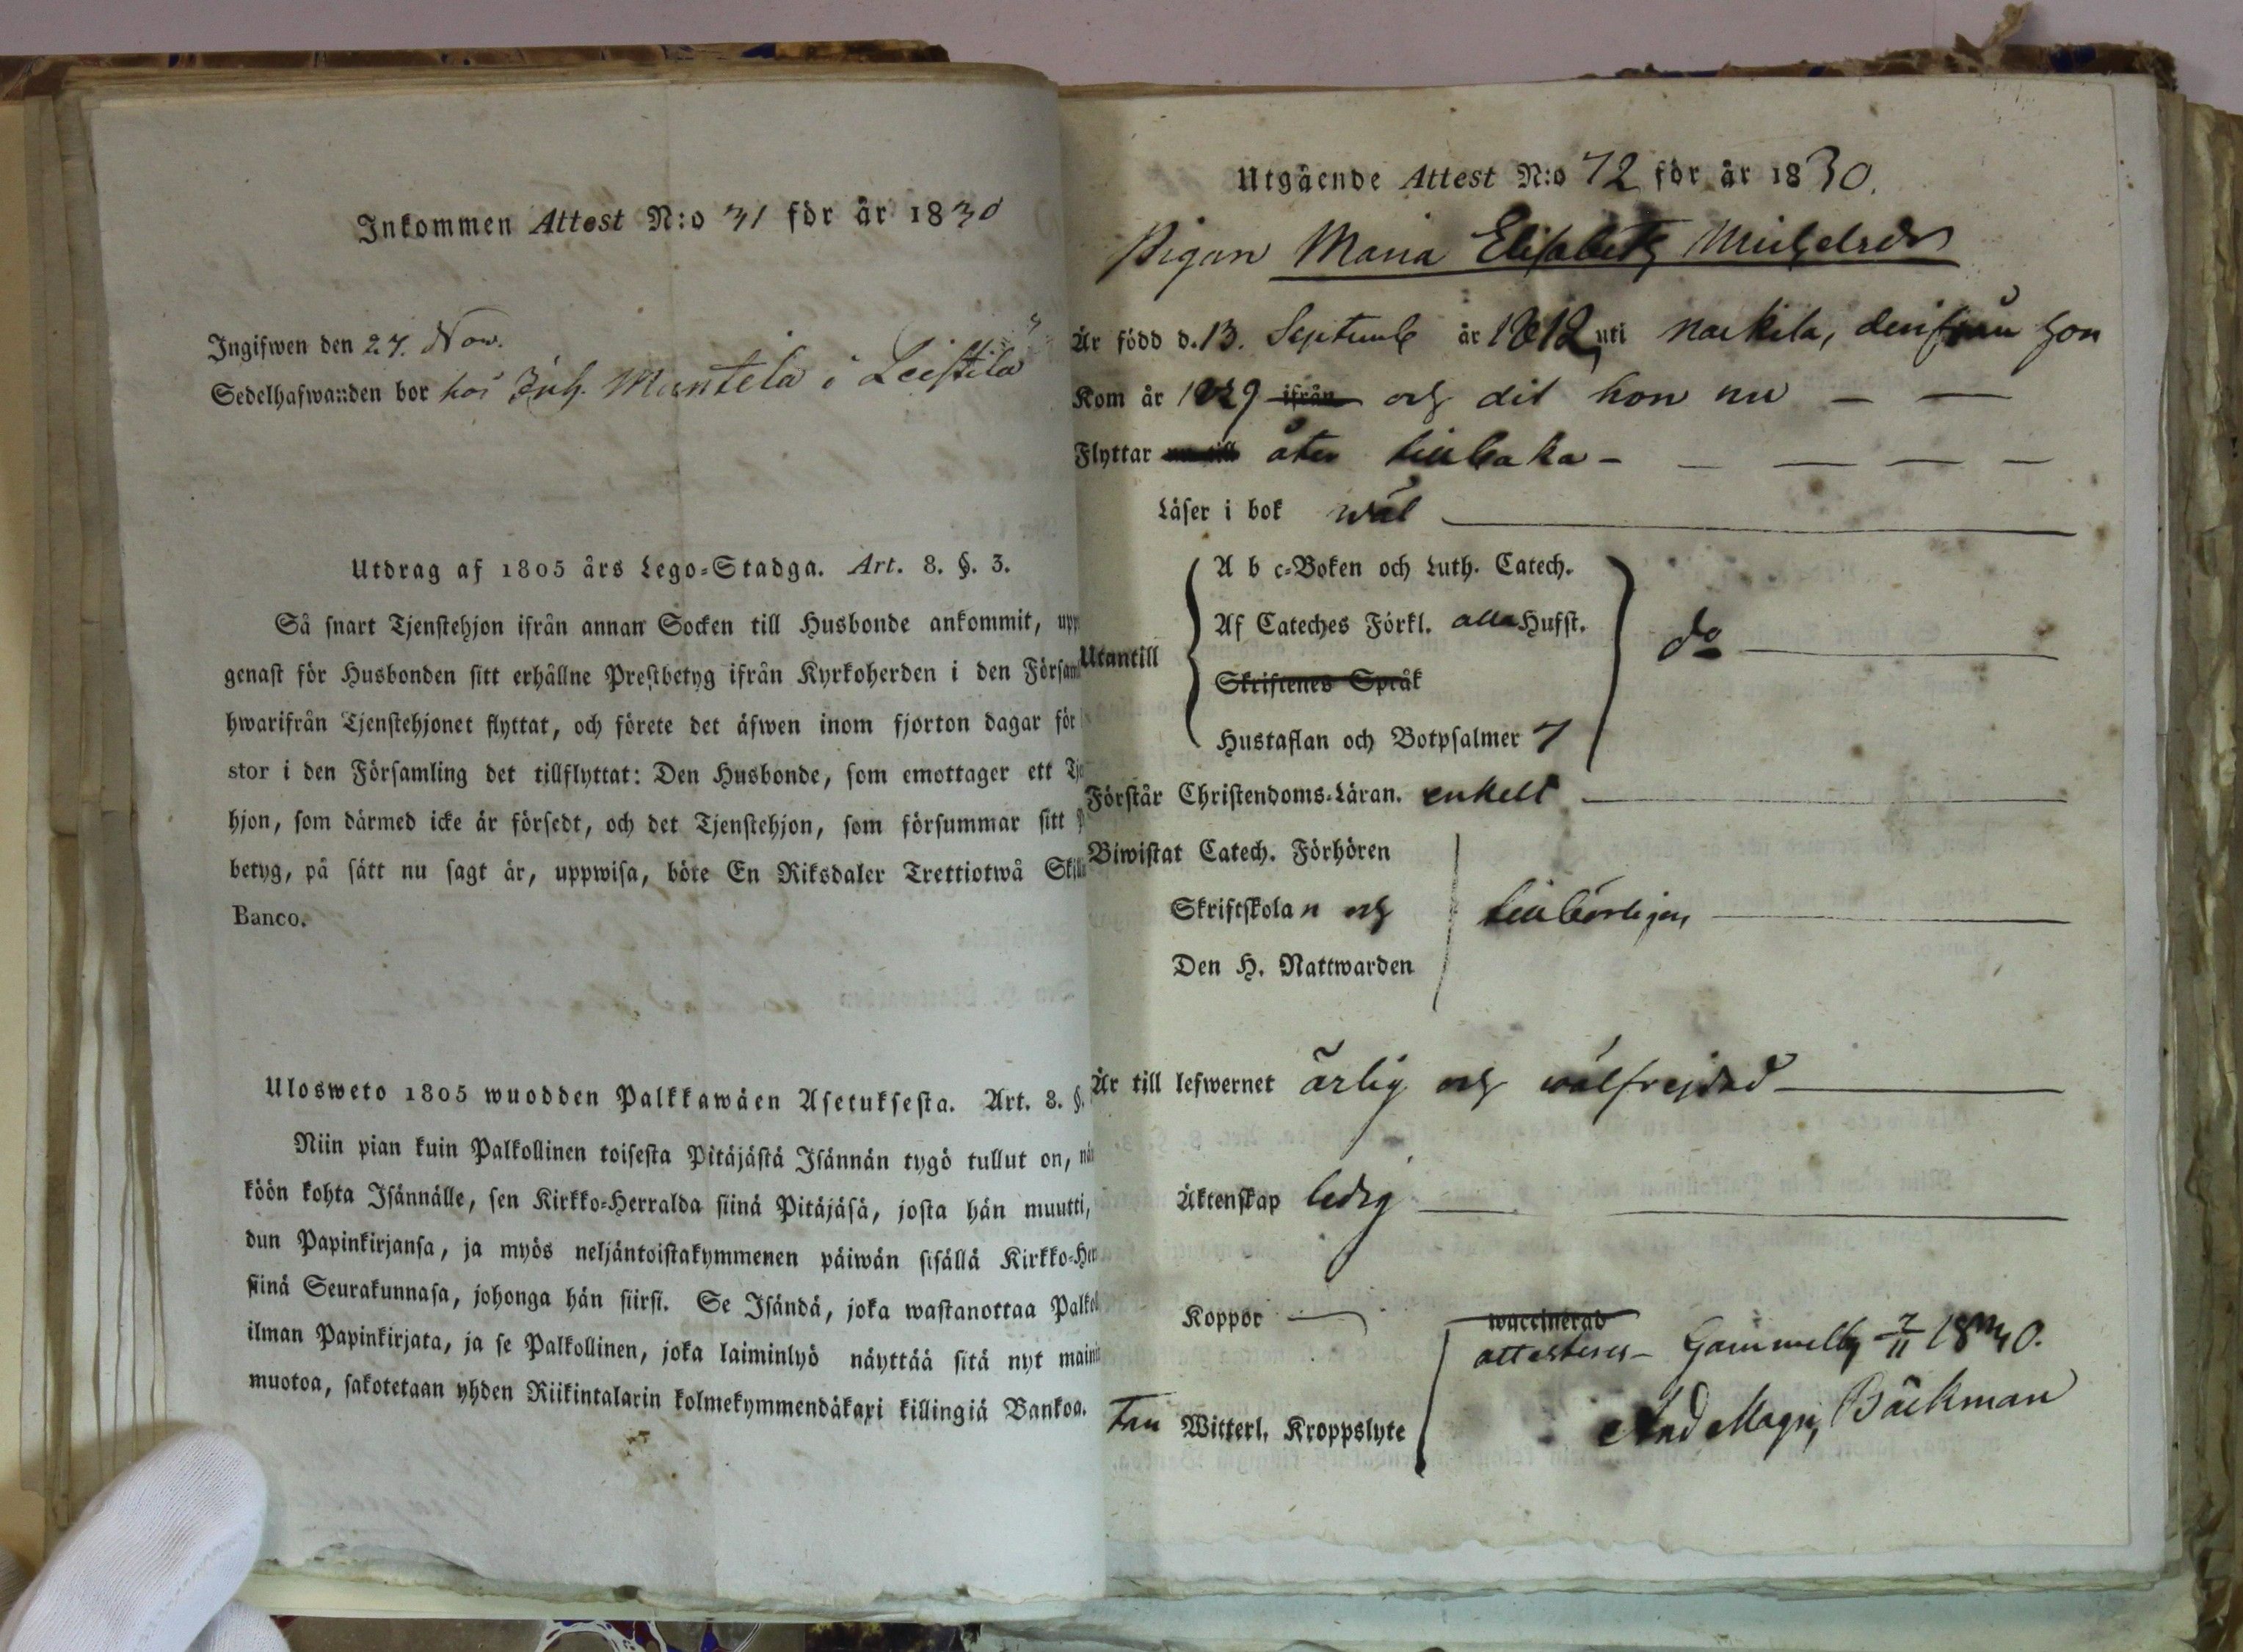 Inkommen Attest N:o 31 för år 1830
Ingifwen den 27. Nov.
Sedelhafwanden bor hos Inh. Mantela i Leistila
Utdrag af 1805 års Lego-Stadga. Art. 8. §. 3.
Så snart Tjenstehjon ifrån annan Socken till Husbonde ankommit, upp
genast för Husbonden sitt erhållne Prestbetyg ifrån Kyrkoherden i den Församl
hwarifrån Tjenstehjonet flyttat, och förete det äfwen inom fjorton dagar för
stor i den Församling det tillflyttat: Den Husbonde, som emottager ett Tje
hjon, som därmed icke är försedt, och det Tjenstehjon, som försummar sitt
betyg, på sätt nu sagt är, uppwisa, böte En Riksdaler Trettiotwå Skill
Banco.
Ulosweto 1805 wuodden Palkkawäen Asetuksesta. Art. 8. §.
Niin pian kuin Palkollinen toisesta Pitäjästä Isännän tygö tullut on, näy
köön kohta Isännälle, sen Kirkko-Herralda siinä Pitäjäsä, josta hän muutti,
dun Papinkirjansa, ja myös neljäntoistakymmenen päiwän sisällä Kirkko-Her
siinä Seurakunnasa, johonga hän siirsi. Se Isändä, joka wastanottaa Palkol
ilman Papinkirjata, ja se Palkollinen, joka laiminlyö näyttää sitä nyt mainit
muotoa, sakotetaan yhden Riikintalarin kolmekymmendäkaxi killingiä Bankoa.
Utgående Attest N:o 72 för år 1830.
Pigan Maria Elisabeth Michelsdr
Är född d. 13. Septemb år 1812, uti Nackila, derifrån hon
Kom år 1829 ifrån och dit hon nu — —
Flyttar nu till åter tillbaka — — — — —
Läser i bok wäl
A b c-Boken och Luth. Catech.
Af Cateches Förkl. alla Hufst.
Utantill do
Skriftenes Språk
Hustaflan och Botpsalmer 7
Förstår Christendoms-Läran. enkelt
Biwistat Catech. Förhören
Skriftskolan och tillbörligen
Den H. Nattwarden
Är till lefwernet ärlig och wälfrejdad
Äktenskap ledig
Koppor — waccinerad
attesteres — Gammelby 7/11 1830.
And Magn Bäckman
Witterl. Kroppslyte